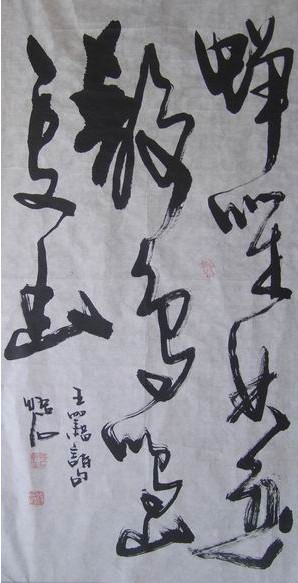 蝉噪林逾
静鸟鸣山
更幽
王籍詩句